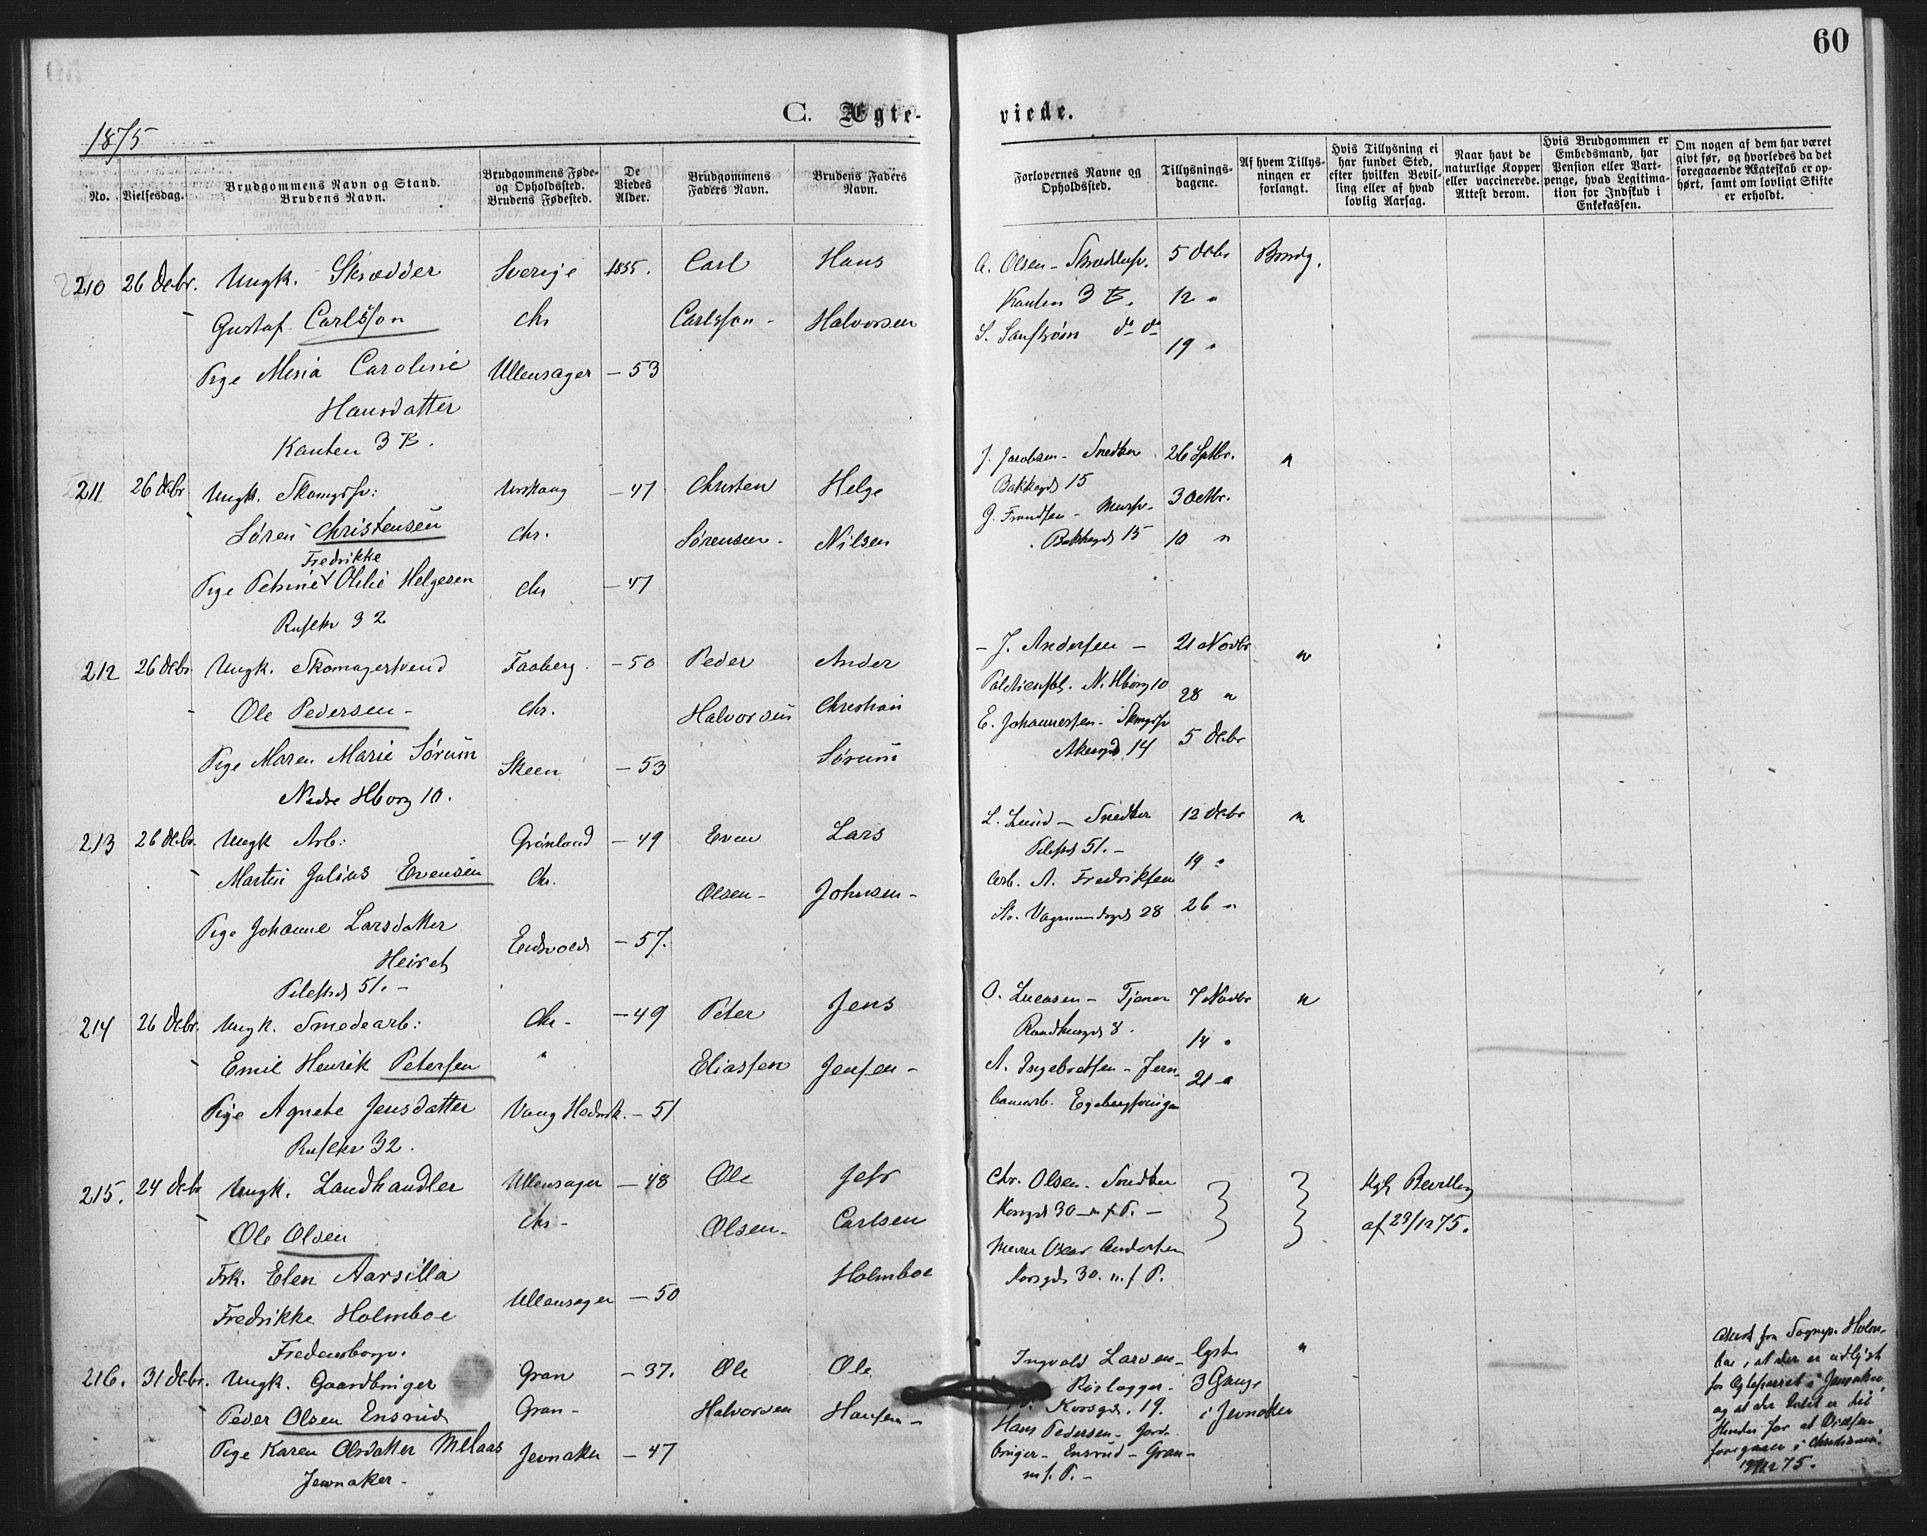 60
C. Ægte-
viede.
1875
No.
Vielsesdag.
Brudgommens Navn og Stand.
Brudens Navn.
Brudgommens Føde-
og Opholdssted.
Brudens Fødested.
De
Viedes
Alder.
Brudgommens
Faders Navn.
Brudens Faders
Navn.
Forlovernes Navne og
Opholdssted.
Tillysnings-
dagene.
Af hvem Tillys-
ningen er
forlangt.
Hvis Tillysning ei
har fundet Sted,
efter hvilken Bevil-
ling eller af hvad
lovlig Aarsag.
Naar havt de
naturlige Kopper
eller vaccinerede.
Attest derom.
Hvis Brudgommen er
Embedsmand, har
Pension eller Vart-
penge, hvad Legitima-
tion for Indskud i
Enkekassen.
Om nogen af dem har været
givt før, og hvorledes da det
foregaaende Ægteskab er op-
hørt, samt om lovligt Skifte
er erholdt.
210 26 Debr. Ungk. Skrædder Sverige 1855. Carl Hans A. Olsen - 5 Debr Brudg.
Gustaf Carlsson Chr Carlsson - Halvorsen Kanten 3 B. 12 "
19 "
Pige Mina Caroline Ullensager - 53
Hansdatter
Kanten 3 B.
211 26 Debr Ungk. Skomgsv: Urskoug - 47 Christen Helge J. Jacobsen - Snedker 26 Sptbr. "
Bakkegd 15
Søren Christensen Chr. Sørensen - Nilsen G. Frandsen - Mursv. 3 Octbr.
Bakkegd 15 10 "
Fredrikke
Pige Petrine Olilie Helgesen Chr - 47
Ruselkr 32
212 26 Debr Ungk. Skomagersvend Faaberg - 50 Peder Ander - J. Andersen - 21 Novbr "
N. Hborg 10 28 "
Ole Pedersen - Chr. Halvorsen Christian E. Johannessen - Skmgsv 5 Debr
Akersgd 14
Pige Maren Marie Sørum Skeen - 53 Sørum
Nedre Hborg 10.
213 26 Debr. Ungk Arb: Grønland - 49 Even Lars L. Lund - Snedker 12 Debr "
Pilestrd 51. -
Martin Julius Evensen Chr. Olsen - Johnsen - Arb. A. Fredriksen 19 "
St. Vognmandsgd 28 26 "
Pige Johanne Larsdatter Eidsvold - 57.
Pilestrd 51. -
214 26 Debr. Ungk. Smedearb: Chr - - 49 Peter Jens O. Lucasen - Tjener 7 Novbr "
Raadhusgd 8. 14 "
Emil Henrik Petersen " Eliassen Jensen - A. Ingebretsen - Jern- 21 "
banearb.
Pige Agnete Jensdatter Vang Hedmk. - 51
Ruselkr 32.
215. 24 Debr Ungk. Landhandler Ullensager - 48 Ole Jess Chr. Olsen - Snedker Kgl. Bevilling
Korsgd 30 - m f P. - af 23/12 75.
Ole Olsen Chr - Olsen - Carlsen Murer Oscar Andersen
Korsgd 30. m f P.
Frk. Elen Aarsilla Holmboe
Fredrikke Holmboe Ullensager - 50
Fredensborgv.
216. 31 Debr. Ungk. Gaardbruger Gran - 37. Ole Ole Ingvald Larsen - lyst "
Rørlægger - 3 Gange
Peder Olsen Ensrud Gran - Halvorsen Hansen - Korsgd. 19. i Jevnaker
Hans Pedersen - Jord-
Pige Karen Olsdatter Melaas Jevnaker - 47 bruger - Ensrud - Gran -
Jevnaker - m f. P. -
Attest fra Sognep. Holm-
boe, at der er udlyst
for Egteparret i Jevnaker,
og at der Intet er til
Hinder for at Vielsen
foregaaer i Christiania.
75.